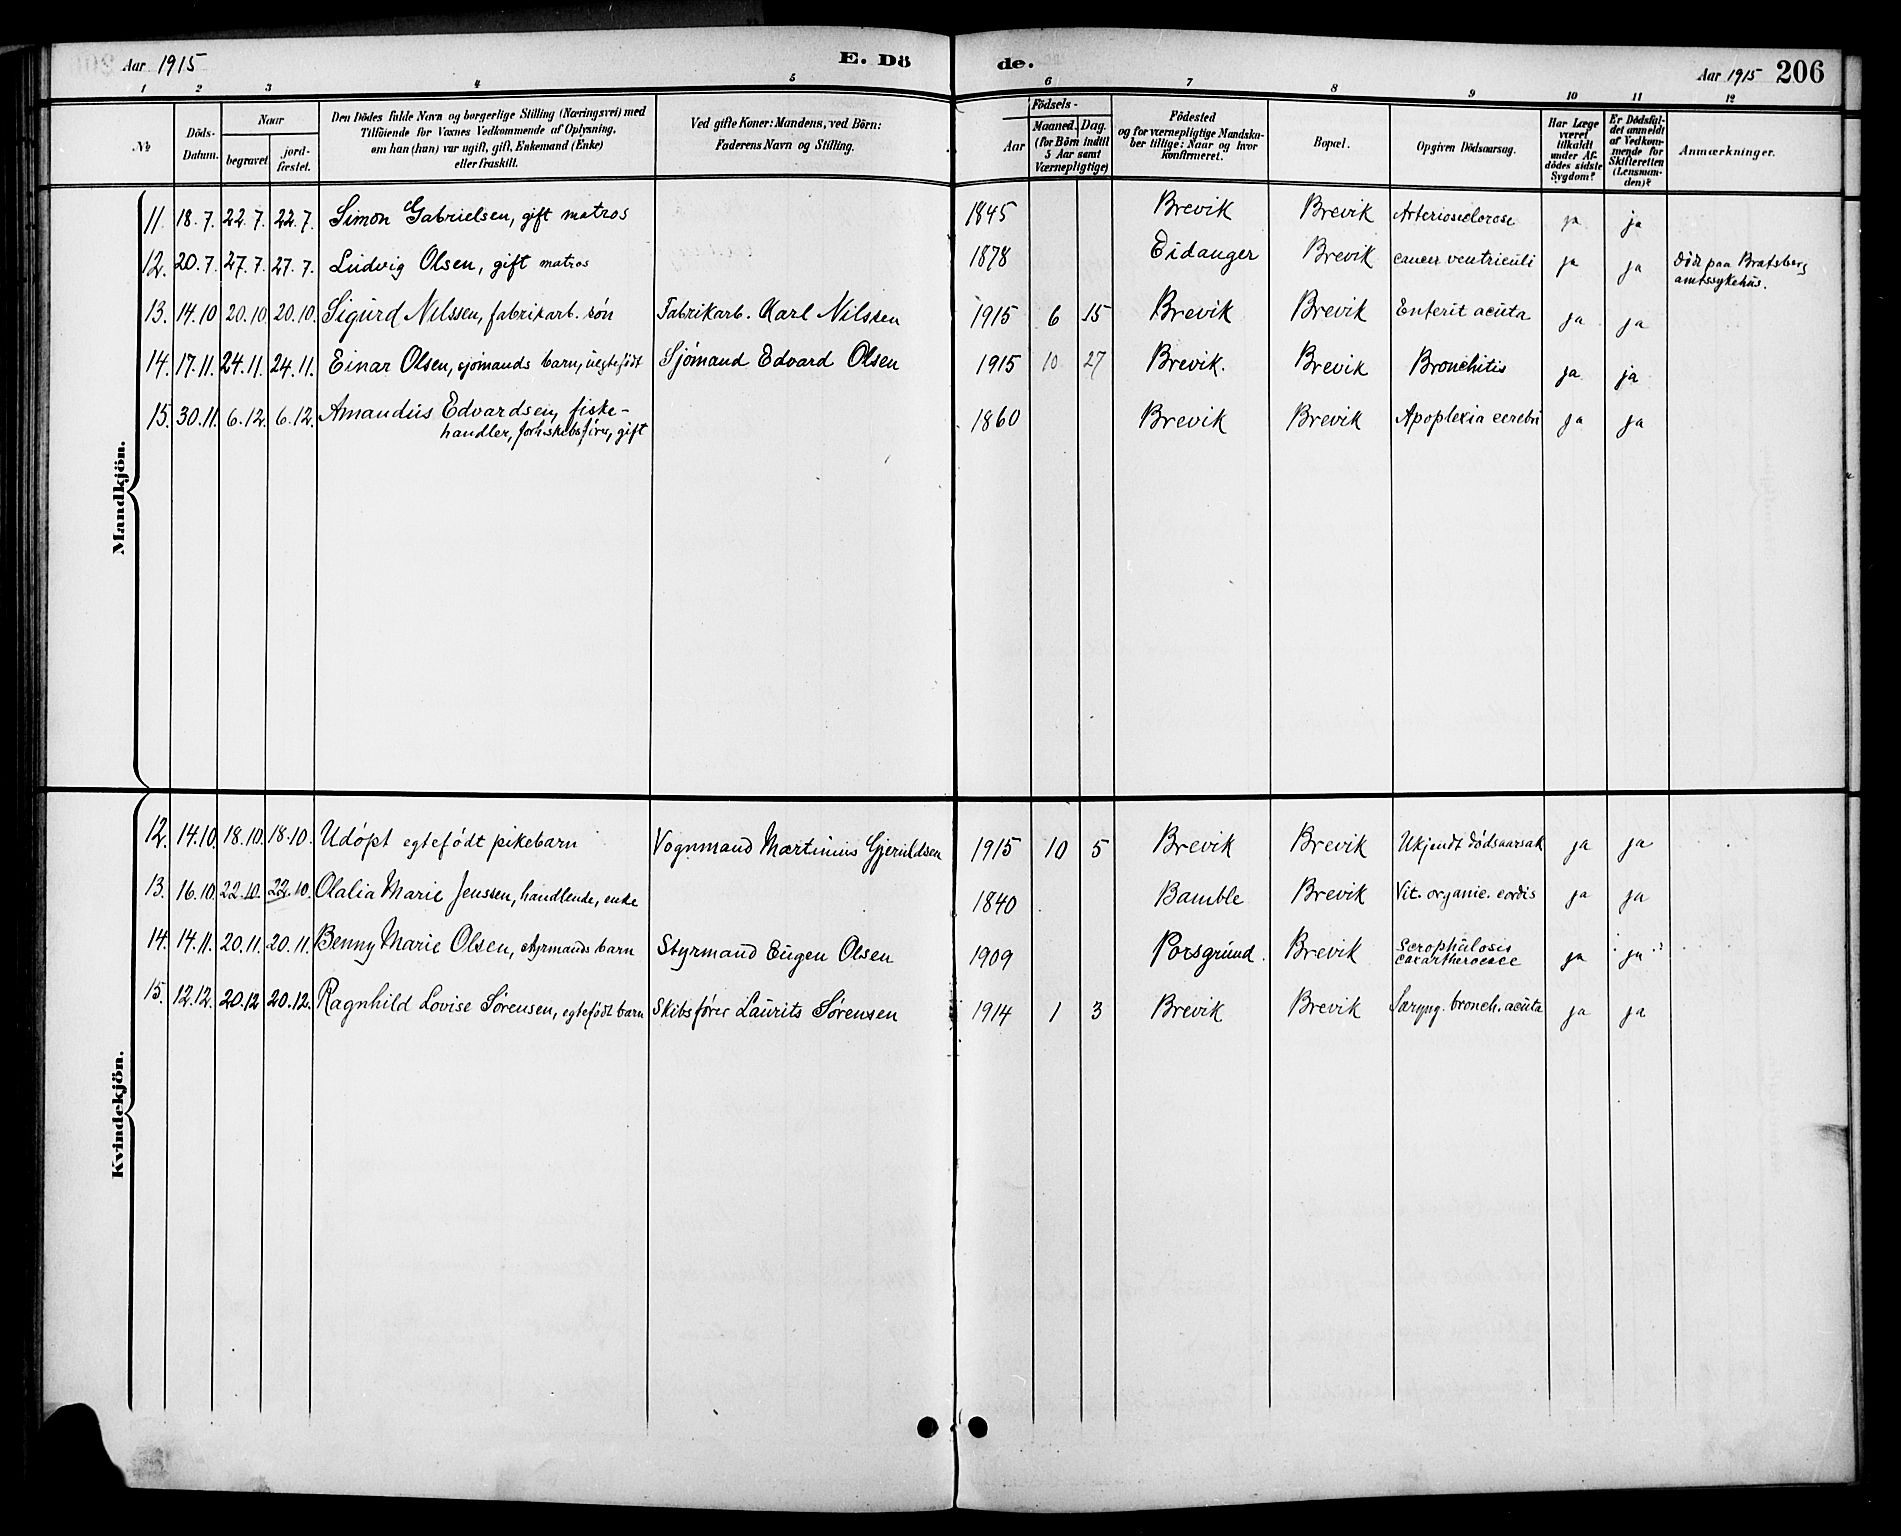 Aar 1915 E. Dö de. Aar 1915 206
1 2 3 4 5 6 7 8 9 10 11 12
No
Döds-
Datum.
Naar
begravet.
jord-
fæstet.
Den Dödes fulde Navn og borgerlige Stilling (Næringsvei) med
Tilföiende for Voxnes Vedkommende af Oplysning,
om han (hun) var ugift, gift, Enkemand (Enke)
eller fraskilt.
Ved gifte Koner: Mandens, ved Börn:
Faderens Navn og Stilling.
Födsels-
Aar
Maaned. Dag.
(for Börn indtil
5 Aar samt
Værnepligtige)
Födested
og for værnepligtige Mandska-
ber tillige: Naar og hvor
konfirmeret.
Bopæl.
Opgiven Dödsaarsag.
Har Læge
været
tilkaldt
under Af-
dödes sidste
Sygdom?
Er Dödsfal-
det anmeldt
af Vedkom-
mende for
Skifteretten
(Lensman-
den)?
Anmærkninger.
Mandkjön.
11. 18.7. 22.7. 22.7. Simon Gabrielsen, gift matros 1845 Brevik Brevik Arteriosclerose ja ja
12. 20.7. 27.7. 27.7. Ludvig Olsen, gift matros 1878 Eidanger Brevik cancer ventriculi ja ja död paa Bratsberg
amtssykehus.
13. 14.10 20.10. 20.10. Sigurd Nilssen, fabrikarb. sön Fabrikarb. Karl Nilssen 1915 6 15 Brevik Brevik Enterit acuta ja ja
14. 17.11. 24.11. 24.11. Einar Olsen, sjömands barn, uegtefödt Sjömand Edvard Olsen 1915 10 27 Brevik. Brevik Bronchitis ja ja
15. 30.11. 6.12. 6.12. Amandus Edvardsen, fiske- 1860 Brevik Brevik Apoplexia cerebri ja ja
handler, forh. skibsförer, gift
Kvindekjön.
12. 14.10. 18.10. 18.10. Udöpt egtefödt pikebarn Vognmand Martinius Gjeruldsen 1915 10 5 Brevik Brevik Ukjendt dödsaarsak ja ja
13. 16.10. 22.10. 22.10. Olalia Marie Jenssen, handlende, enke 1840 Bamble Brevik Vit. organic. cordis ja ja
14. 14.11. 20.11. 20.11. Benny Marie Olsen, styrmands barn Styrmand Eugen Olsen 1909 Porsgrund. Brevik Scrophulosis ja ja
15. 12.12. 20.12 20.12. Ragnhild Lovise Sörensen, egtefödt barn Skibsförer Laurits Sörensen 1914 1 3 Brevik Brevik Laryng. bronch. acuta ja ja